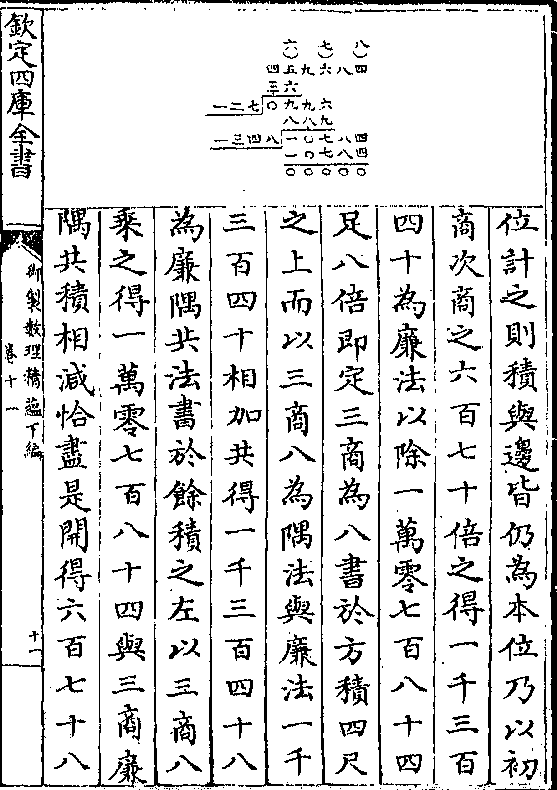 六〇七〇八〇
四五九六八四
三六
一二七〇九九六
八八九
一三四八一〇七八四
一〇七八四
〇〇〇〇〇
位計之則積與邊皆仍為本位乃以初
商次商之六百七十倍之得一千三百
四十為廉法以除一萬零七百八十四
足八倍即定三商為八書於方積四尺
之上而以三商八為隅法與廉法一千
三百四十相加共得一千三百四十八
為廉隅共法書於餘積之左以三商八
乘之得一萬零七百八十四與三商廉
隅共積相減恰盡是開得六百七十八
欽定四庫全書
御製數理精蘊下編
卷十一
十一